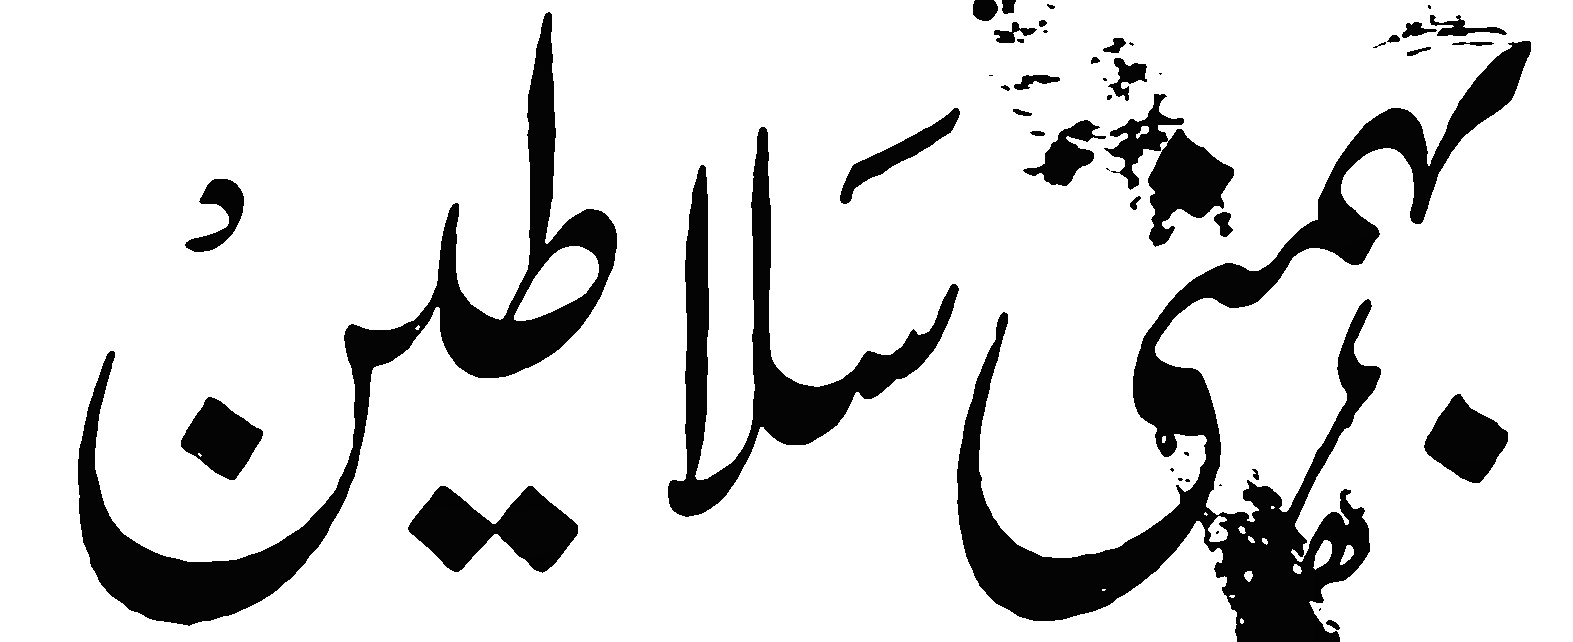 بہمنی سلاطین